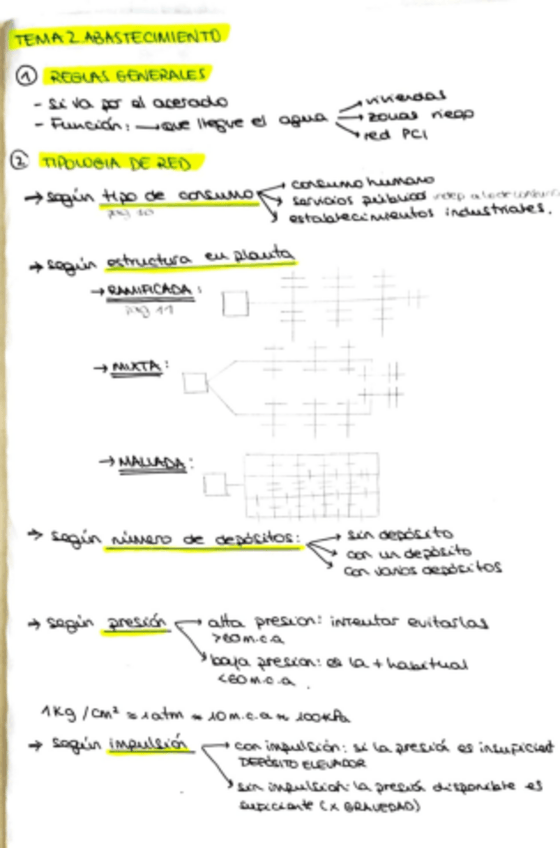 TEMA 2. ABASTECIMIENTO
① REGLAS GENERALES
- Si va por el acerado
- Función: → que llegue el agua → viviendas
→ zonas riego
→ red PCI
② TIPOLOGIA DE RED
→ según tipo de consumo → consumo humano
pag 10 → servicios públicos
→ establecimientos industriales.
→ según estructura en planta
→ RAMIFICADA:
pag 11
→ MIXTA:
→ MALLADA:
→ según número de depósitos: → sin depósito
→ con un depósito
→ con varios depósitos
→ según presión → alta presion: intentar evitarlas
>60 m.c.a
→ baja presion: es la + habitual
<60 m.c.a.
1Kg/cm² ≈ 1atm ≈ 10 m.c.a ≈ 100KPa
→ según impulsión → con impulsión: si la presión es insuficient
DEPÓSITO ELEVADOR
→ sin impulsión: la presión disponible es
suficiente (x GRAVEDAD)